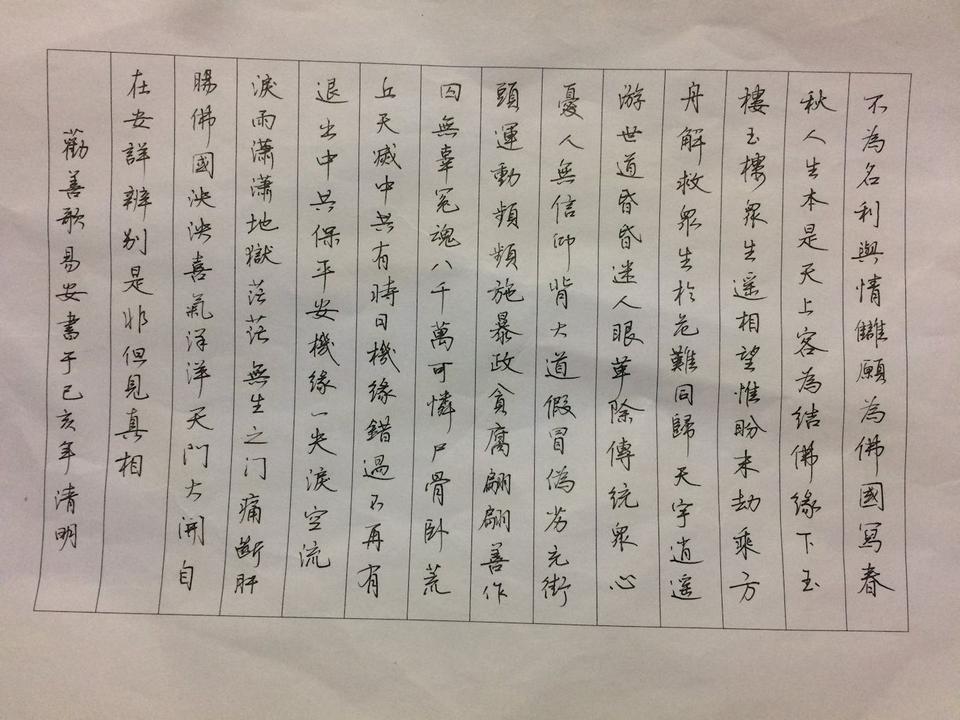 不為名利與情讎願為佛國寫春
秋人生本是天上客為結佛緣下玉
樓玉樓眾生遥相望惟盼末劫乘方
舟解救眾生於危難同歸天宇逍遥
游世道昏昏迷人眼革除傳统眾心
憂人無信仰背大道假冒偽劣充街
頭運動頻頻施暴政貪腐翩翩善作
囚無辜冤魂八千萬可憐尸骨卧荒
丘天滅中共有時日機缘錯過不再有
退出中共保平安機缘一失淚空流
淚雨潇潇地獄茫茫無生之门痛斷肝
腸佛國泱泱喜氣洋洋天門大開自
在安詳辨别是非但見真相
勸善歌易安書于己亥年清明